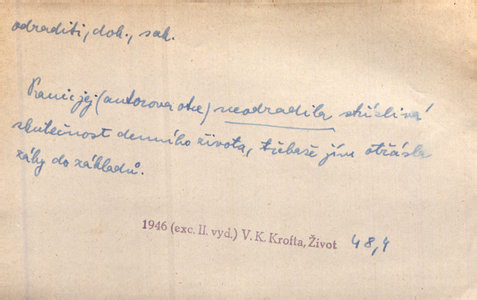 odraditi, dok., sak.
Pranic jej (autorova otce) neodradila skříslivá
skutečnost denního života, třebaže jím otřásla
záhy do základů.
1946 (exc. II. vyd.) V. K. Krofta, Život 48,4